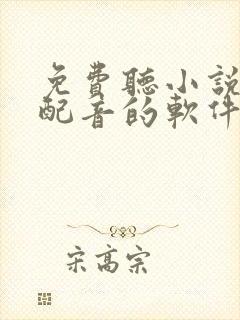 免費聽小說
配音的軟件
宋高宗